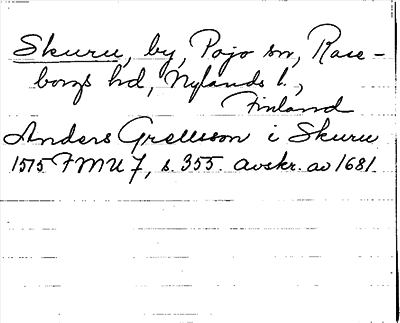 Skuru, by, Pojo sn, Rase-
borgs hd, Nylands l.,
Finland
Anders Grelsson i Skuru
1515 FMU 7, s. 355. avskr. av 1681.